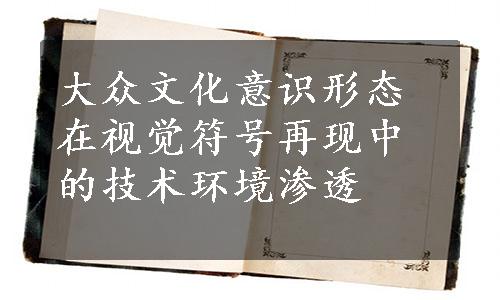 大众文化意识形态
在视觉符号再现中
的技术环境渗透